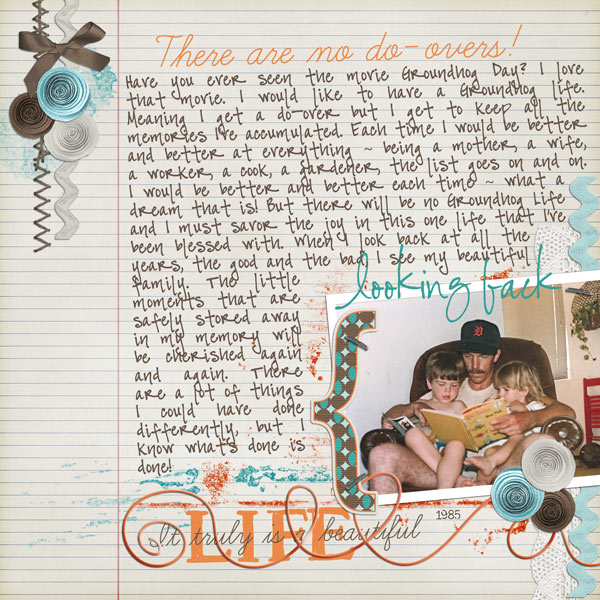 There are no do-overs!
Have you ever seen the movie Groundhog Day? I love
that movie. I would like to have a Groundhog life.
Meaning I get a do-over but I get to keep all the
memories I've accumulated. Each time I would be better
and better at everything ~ being a mother, a wife,
a worker, a cook, a gardener, the list goes on and on.
I would be better and better each time ~ what a
dream that is! But there will be no Groundhog Life
and I must savor the joy in this one life that I've
been blessed with. When I look back at all the
years, the good and the bad I see my beautiful
family. The little
moments that are
safely stored away
in my memory will
be cherished again
and again. There
are a lot of things
I could have done
differently, but I
know what's done is
done!
looking back
1985
It truly is a beautiful
LIFE